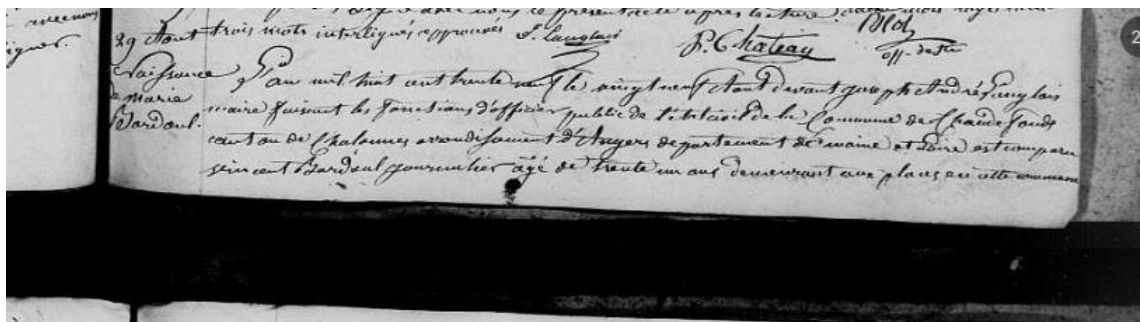 avec nous
signer.
trois mots interlignés approuvés J. Langlais
P. Chateau
off. de
29 Aout
Naissance
de Marie
Bardoul.
L'an mil huit cent trente neuf le vingt neuf Aout devant Joseph André Langlais
maire faisant les fonctions d'officier public de l'état civil de la Commune de Chaudefonds
canton de Chalonnes arrondissement d'Angers departement de maine et Loire est comparu
vincent Bardoul journalier âgé de trente un ans demeurant aux places en cette commune
2